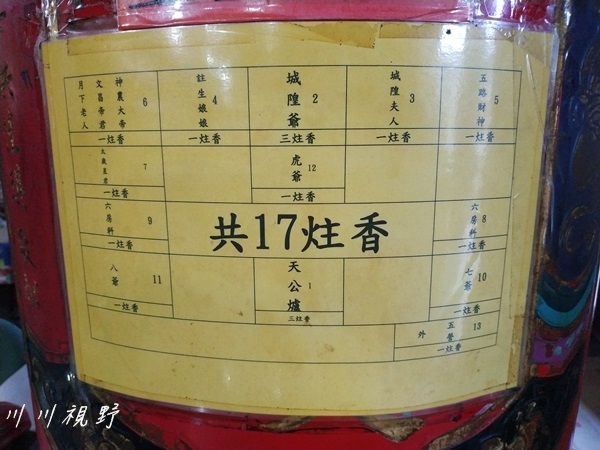 月下老人 文昌帝君 神農大帝 6 一炷香
註生娘娘 4 一炷香
城隍爺 2 三炷香
城隍夫人 3 一炷香
五路財神 5 一炷香
太歲星君 7 一炷香
虎爺 12 一炷香
六房科 9 一炷香
共17炷香
六房科 8 一炷香
八爺 11 一炷香
天公爐 1 三炷香
七爺 10 一炷香
外五營 13 一炷香
川川視野